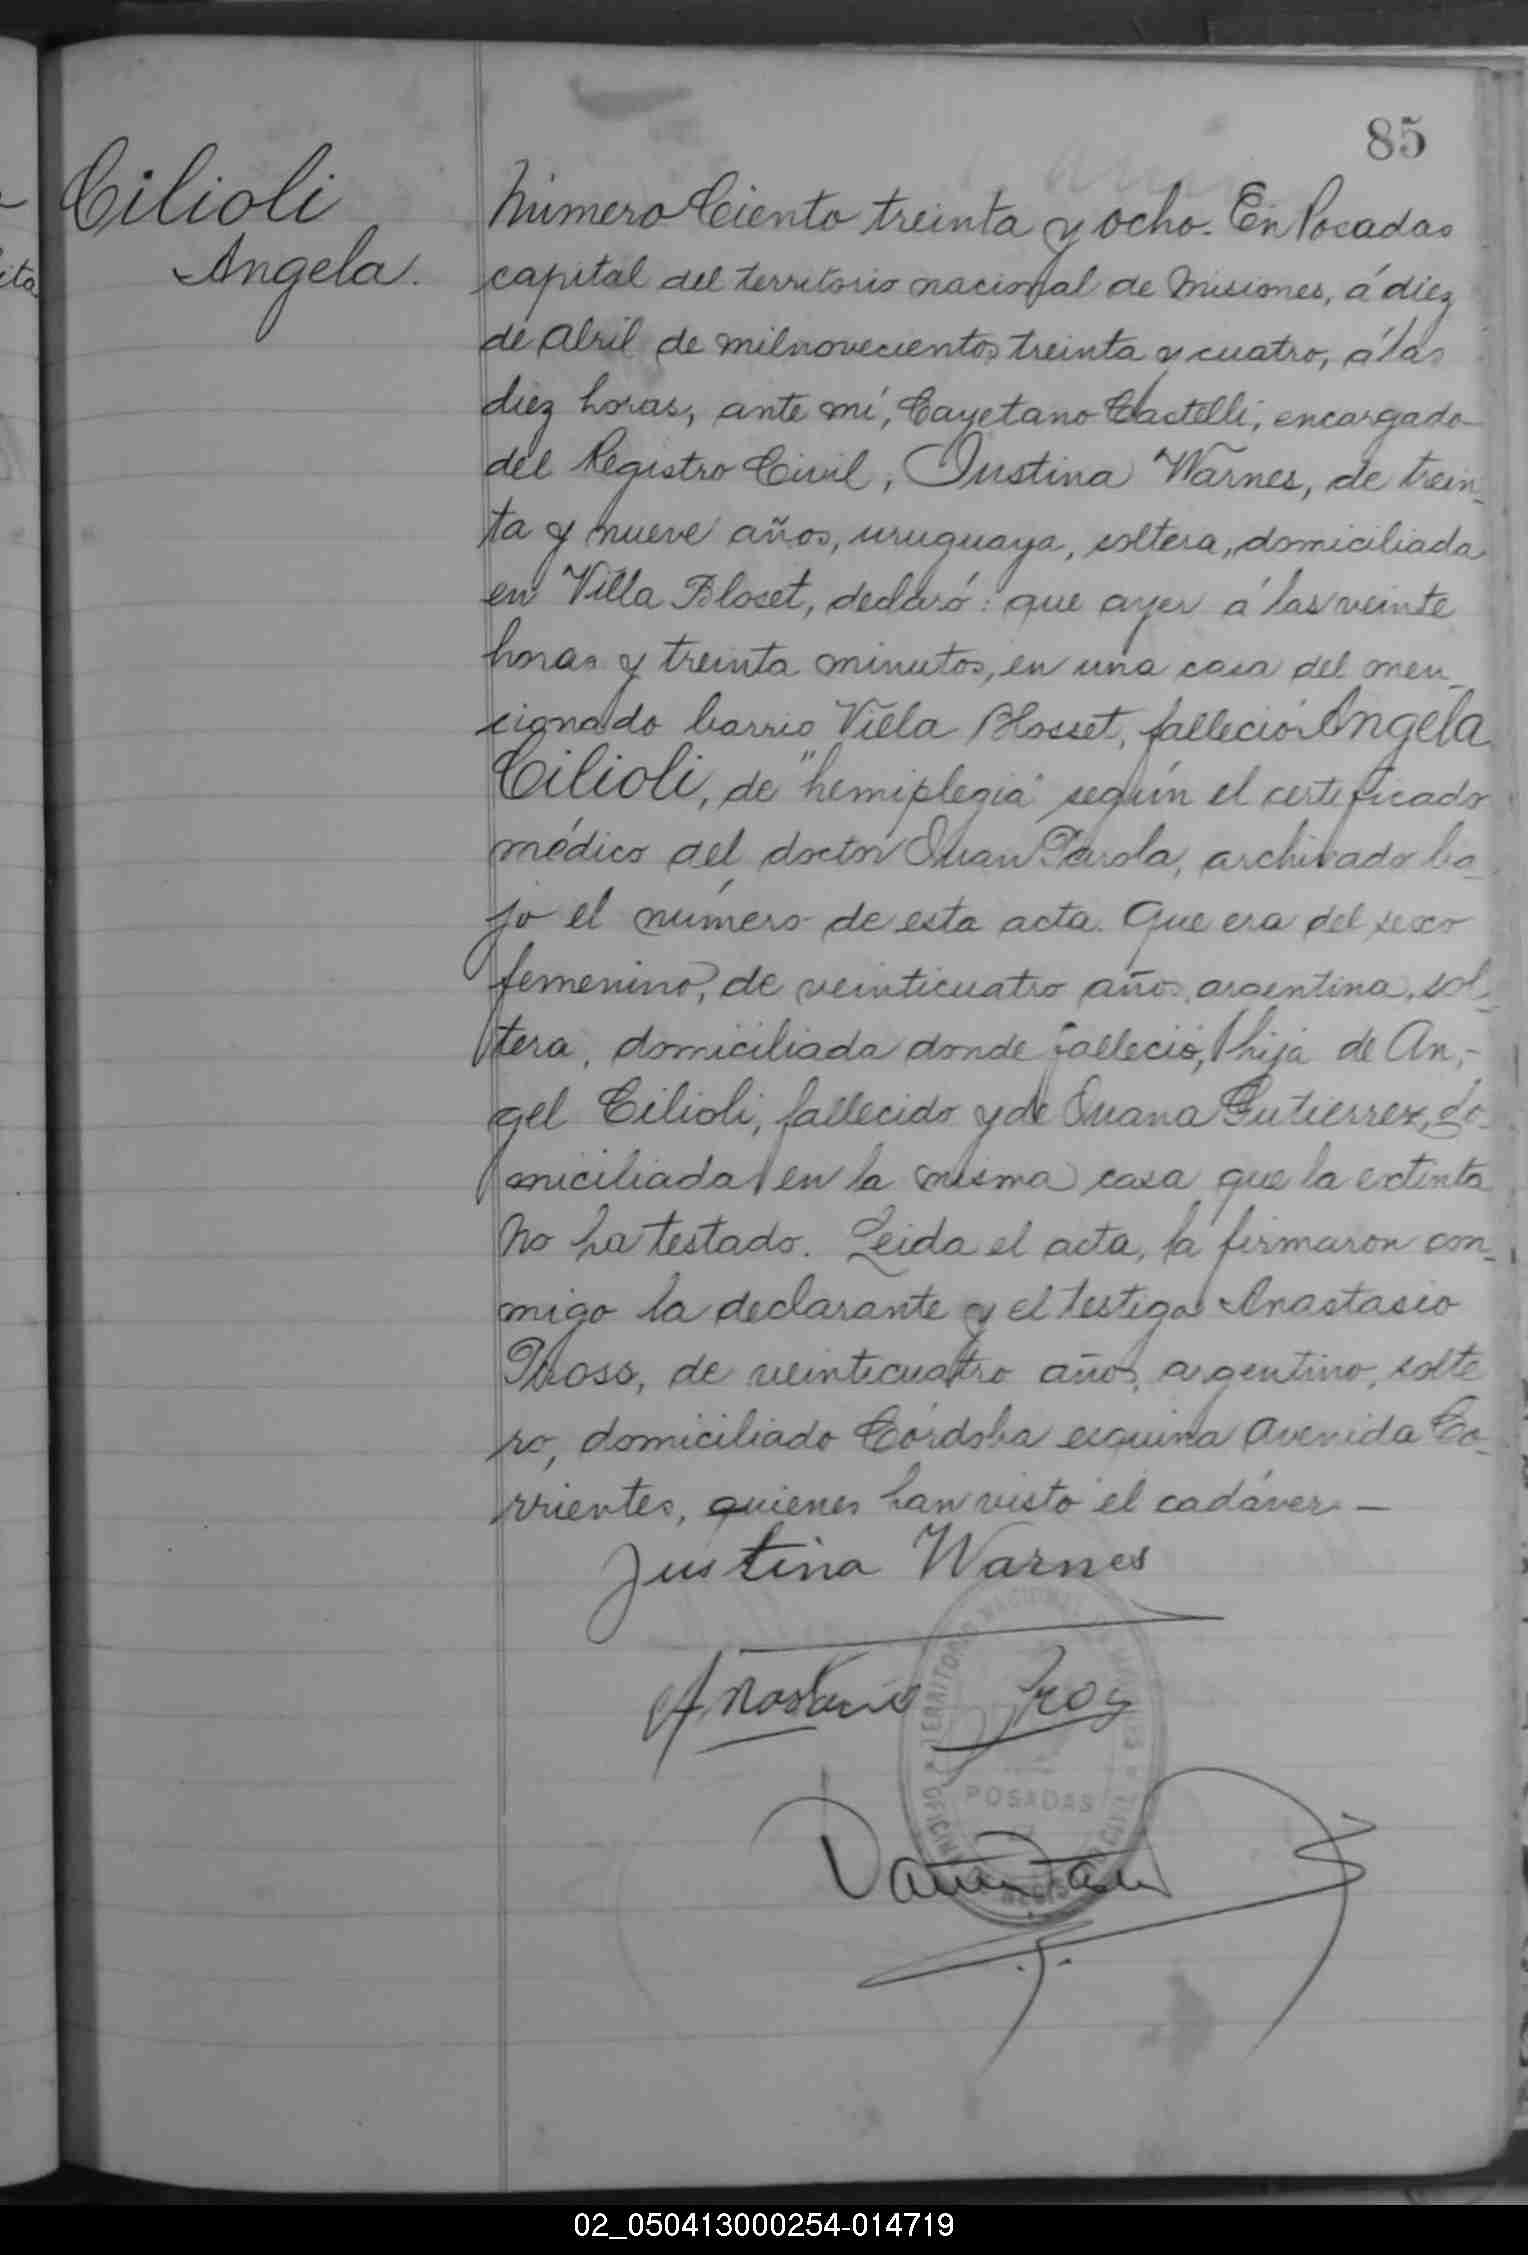 85
Cilioli
Angela.
Número Ciento treinta y ocho. En Posadas
capital del territorio nacional de Misiones, á diez
de Abril de milnovecientos treinta y cuatro, á las
diez horas, ante mí, Cayetano Castelli, encargado
del Registro Civil, Justina Warnes, de trein-
ta y nueve años, uruguaya, soltera, domiciliada
en Villa Bloset, declaró: que ayer á las veinte
horas y treinta minutos, en una casa del men-
cionado barrio Villa Blosset, falleció Angela
Cilioli, de "hemiplegia" según el certificado
médico del doctor Juan Parola, archivado ba-
jo el número de esta acta. Que era del sexo
femenino, de veinticuatro años, argentina, sol-
tera, domiciliada donde falleció, hija de An-
gel Cilioli, fallecido y de Juana Gutierrez, do-
miciliada en la misma casa que la extinta
No ha testado. Leida el acta, la firmaron con-
migo la declarante y el testigo Anastasio
de veinticuatro años, argentino, solte
ro, domiciliado Córdoba esquina Avenida Co-
rrientes, quienes han visto el cadáver. —
Justina Warnes
Anastacio
TERRITORIO NACIONAL
POSADAS
02_050413000254-014719